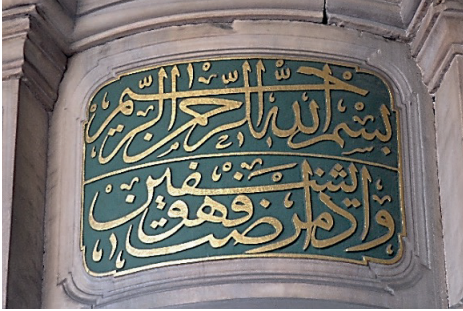 بسم الله الرحمن الرحيم
واذا مرضت فهو يشفين